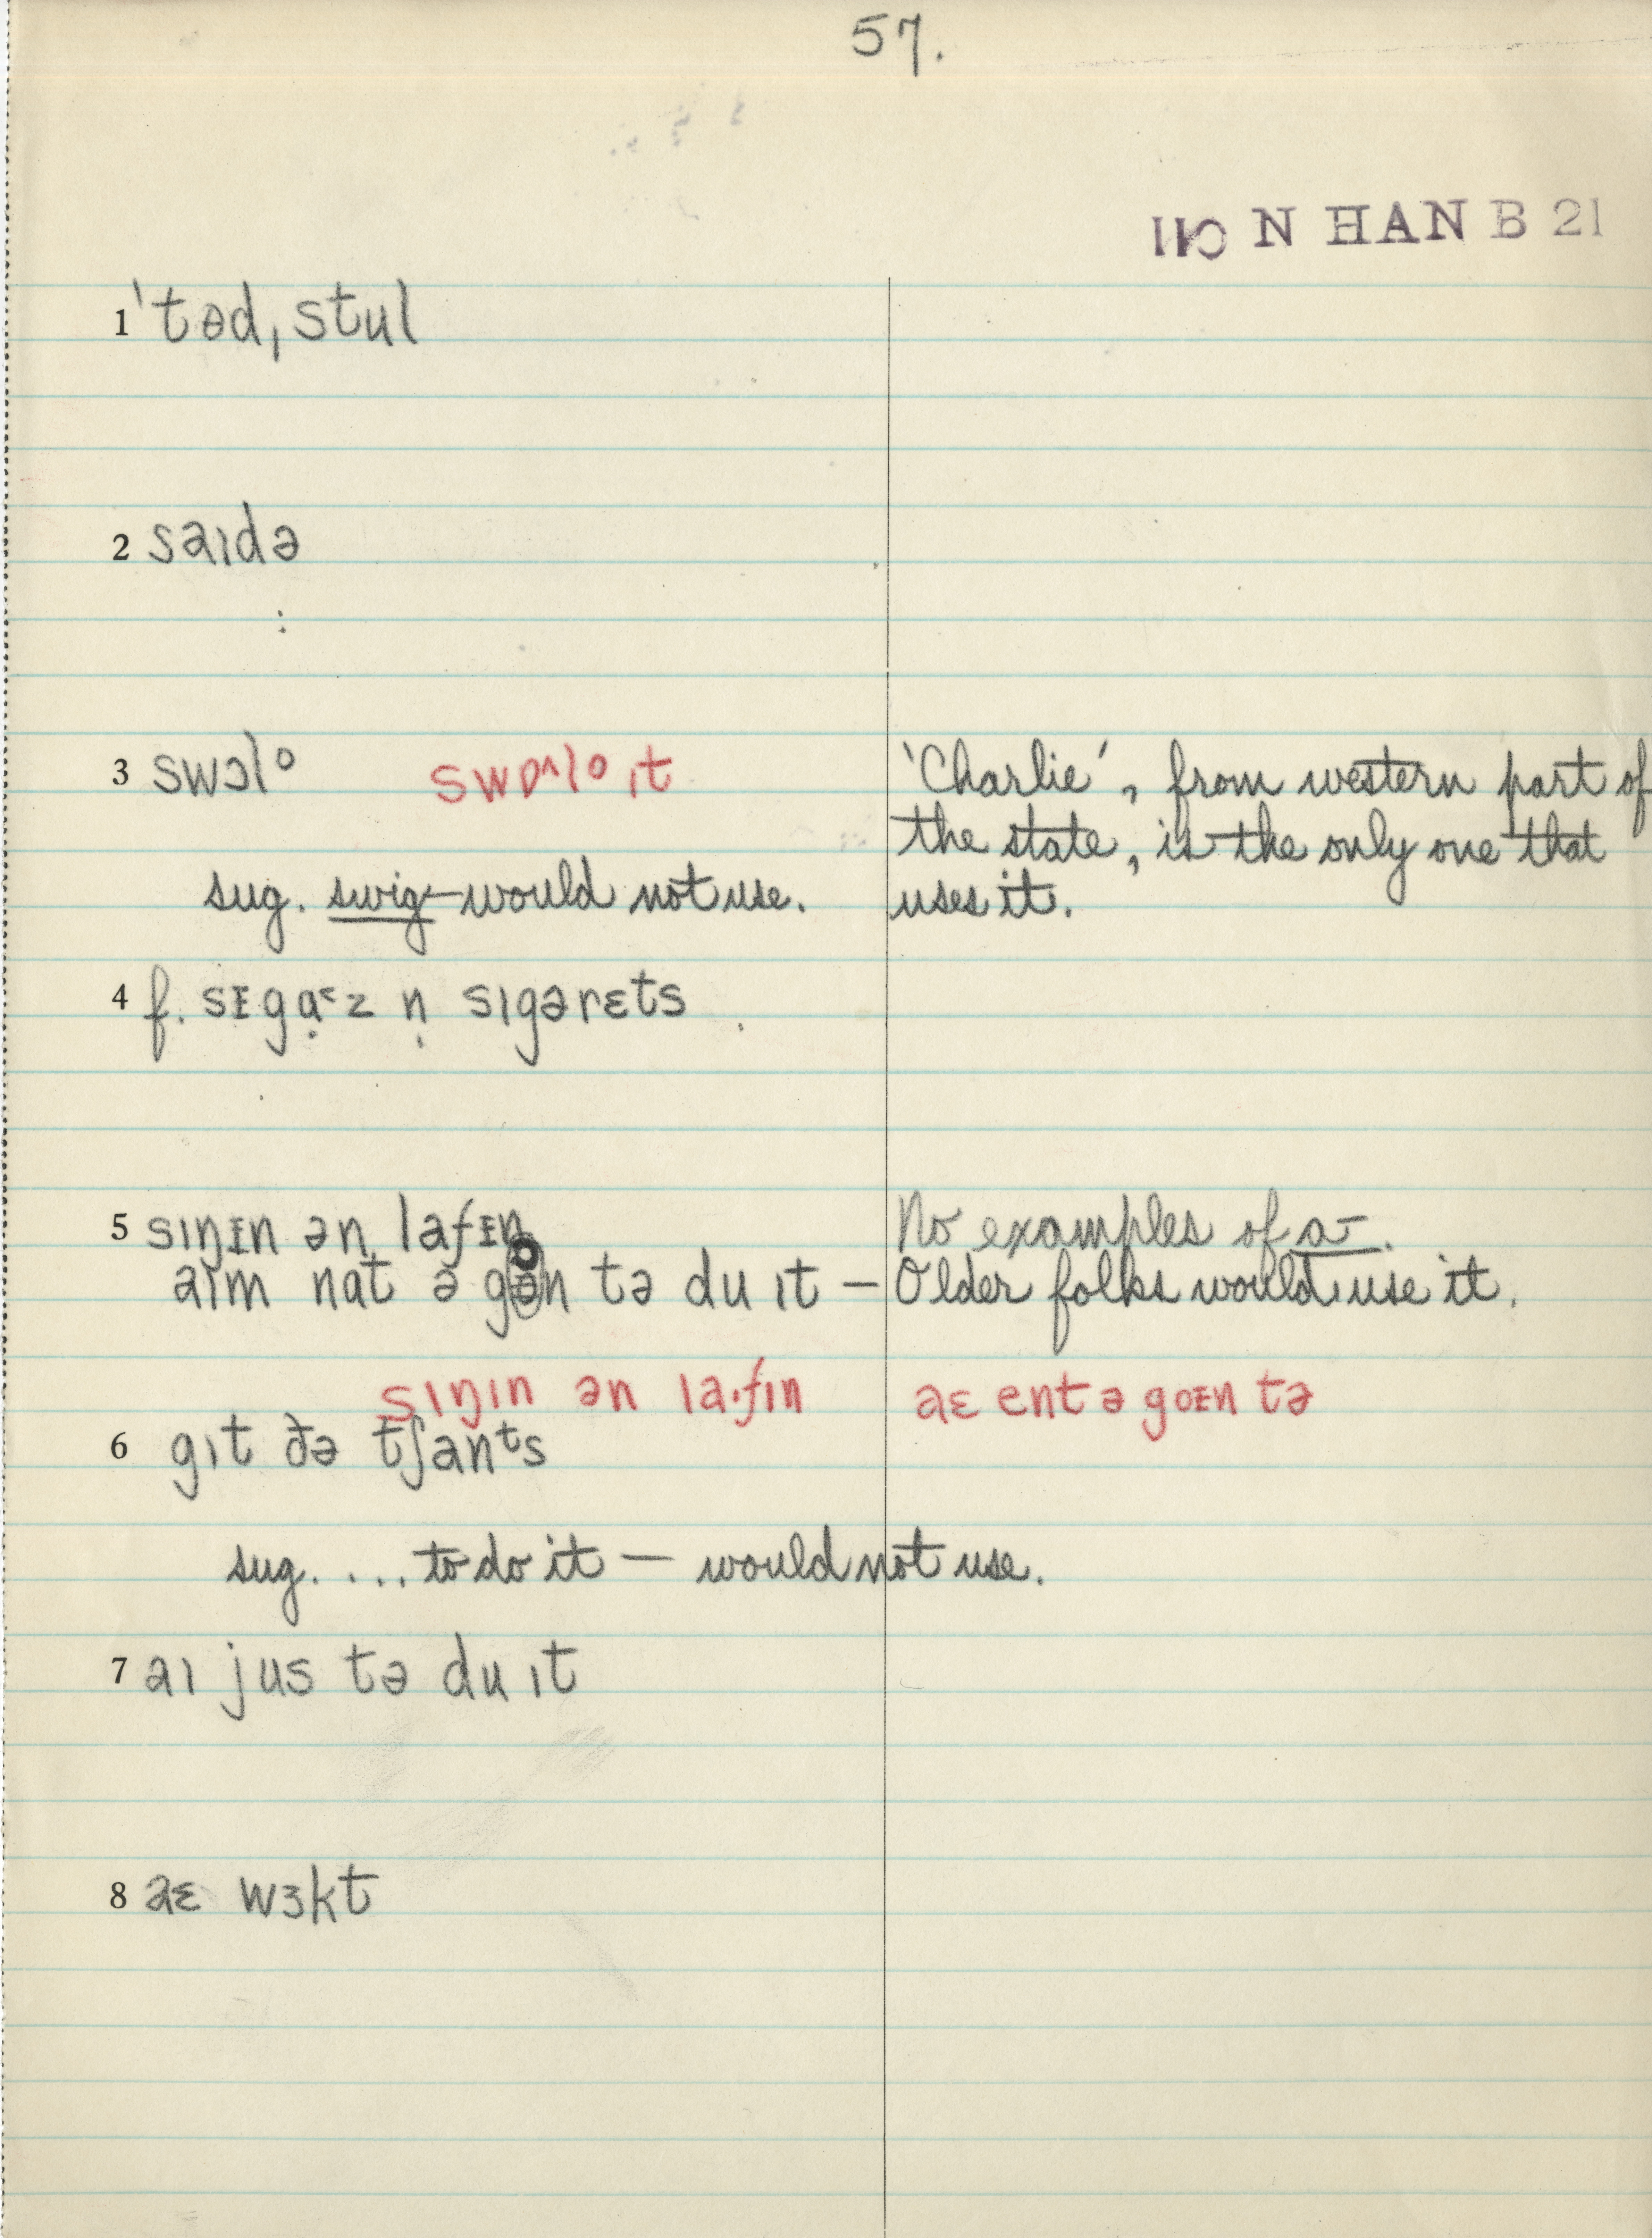 57.
N HAN B 21
1 ˈtɵd, stul
2 saɪdə
3 swɔlº swɒ^lº ɪt 'Charlie', from western part of
the state, is the only one that
sug. swig—would not use. uses it.
4 f. sᵻgạ˂z ṇ sɪgərɛts
5 sɪŋᵻn ən lafᵻn No examples of a-.
aɪm nat ə n tə du ɪt — Older folks would use it.
sɪŋɪn ən la·fɪn aɛ ent ə goᵻn tə
6 gɪt ðə tʃanᵗs
sug. ... to do it — would not use.
7 aɪ jus tə du ɪt
8 aɛ wɜkt